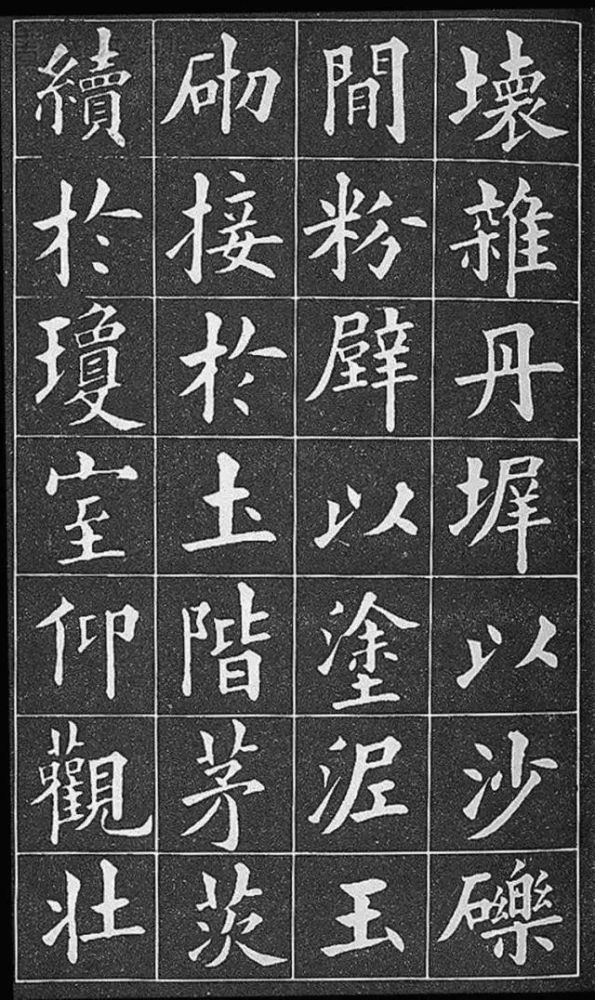 壞雜丹墀以沙礫
間粉壁以塗泥玉
砌接於土階茅茨
續於瓊室仰觀壯